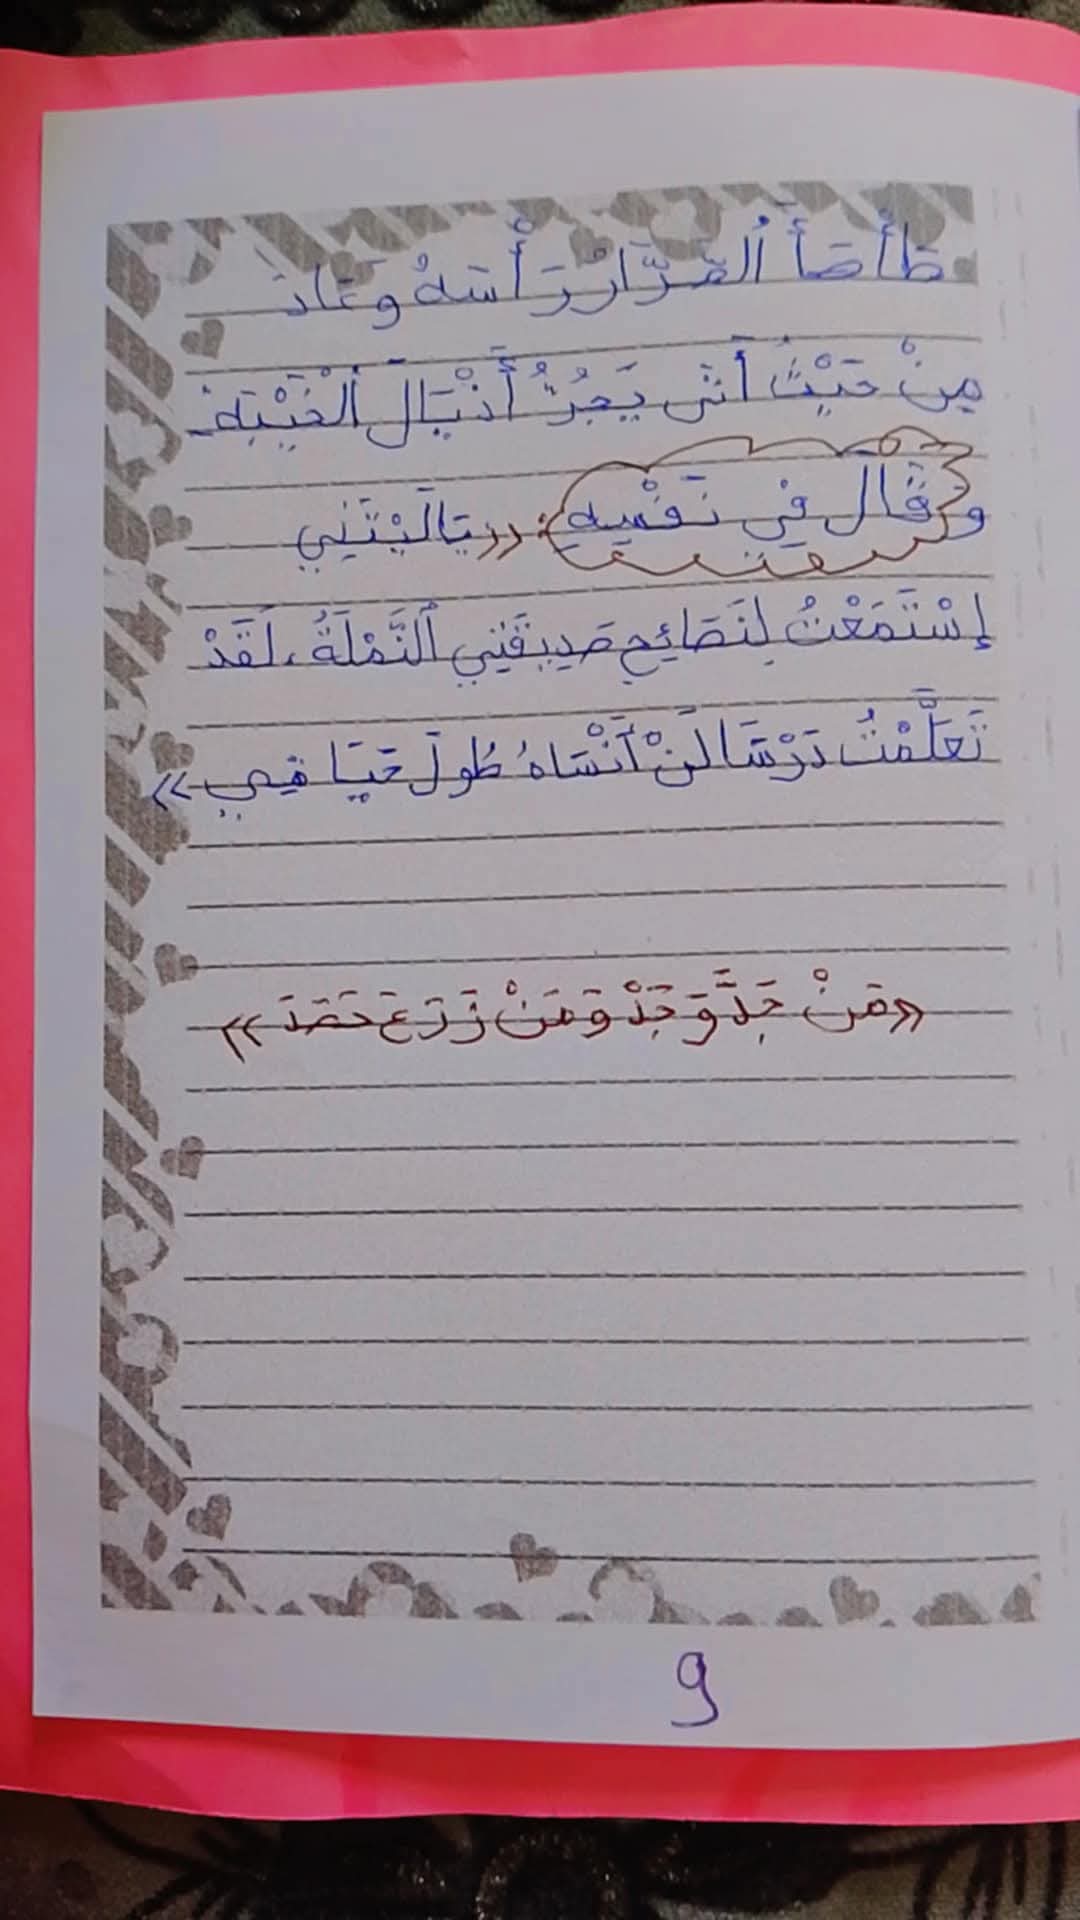 طَأْطَأَ ٱلصَّرَّارُ رَأْسَهُ وَعَادَ
مِنْ حَيْثُ أَتَى يَجُرُّ أَذْيَالَ ٱلْخَيْبَةِ.
وَقَالَ فِي نَفْسِهِ: «يَا لَيْتَنِي
إِسْتَمَعْتُ لِنَصَائِحِ صَدِيقَتِي ٱلنَّمْلَةُ، لَقَدْ
تَعَلَّمْتُ دَرْسًا لَنْ أَنْسَاهُ طُولَ حَيَاتِي»
«مَنْ جَدَّ وَجَدَ وَمَنْ زَرَعَ حَصَدَ»
9